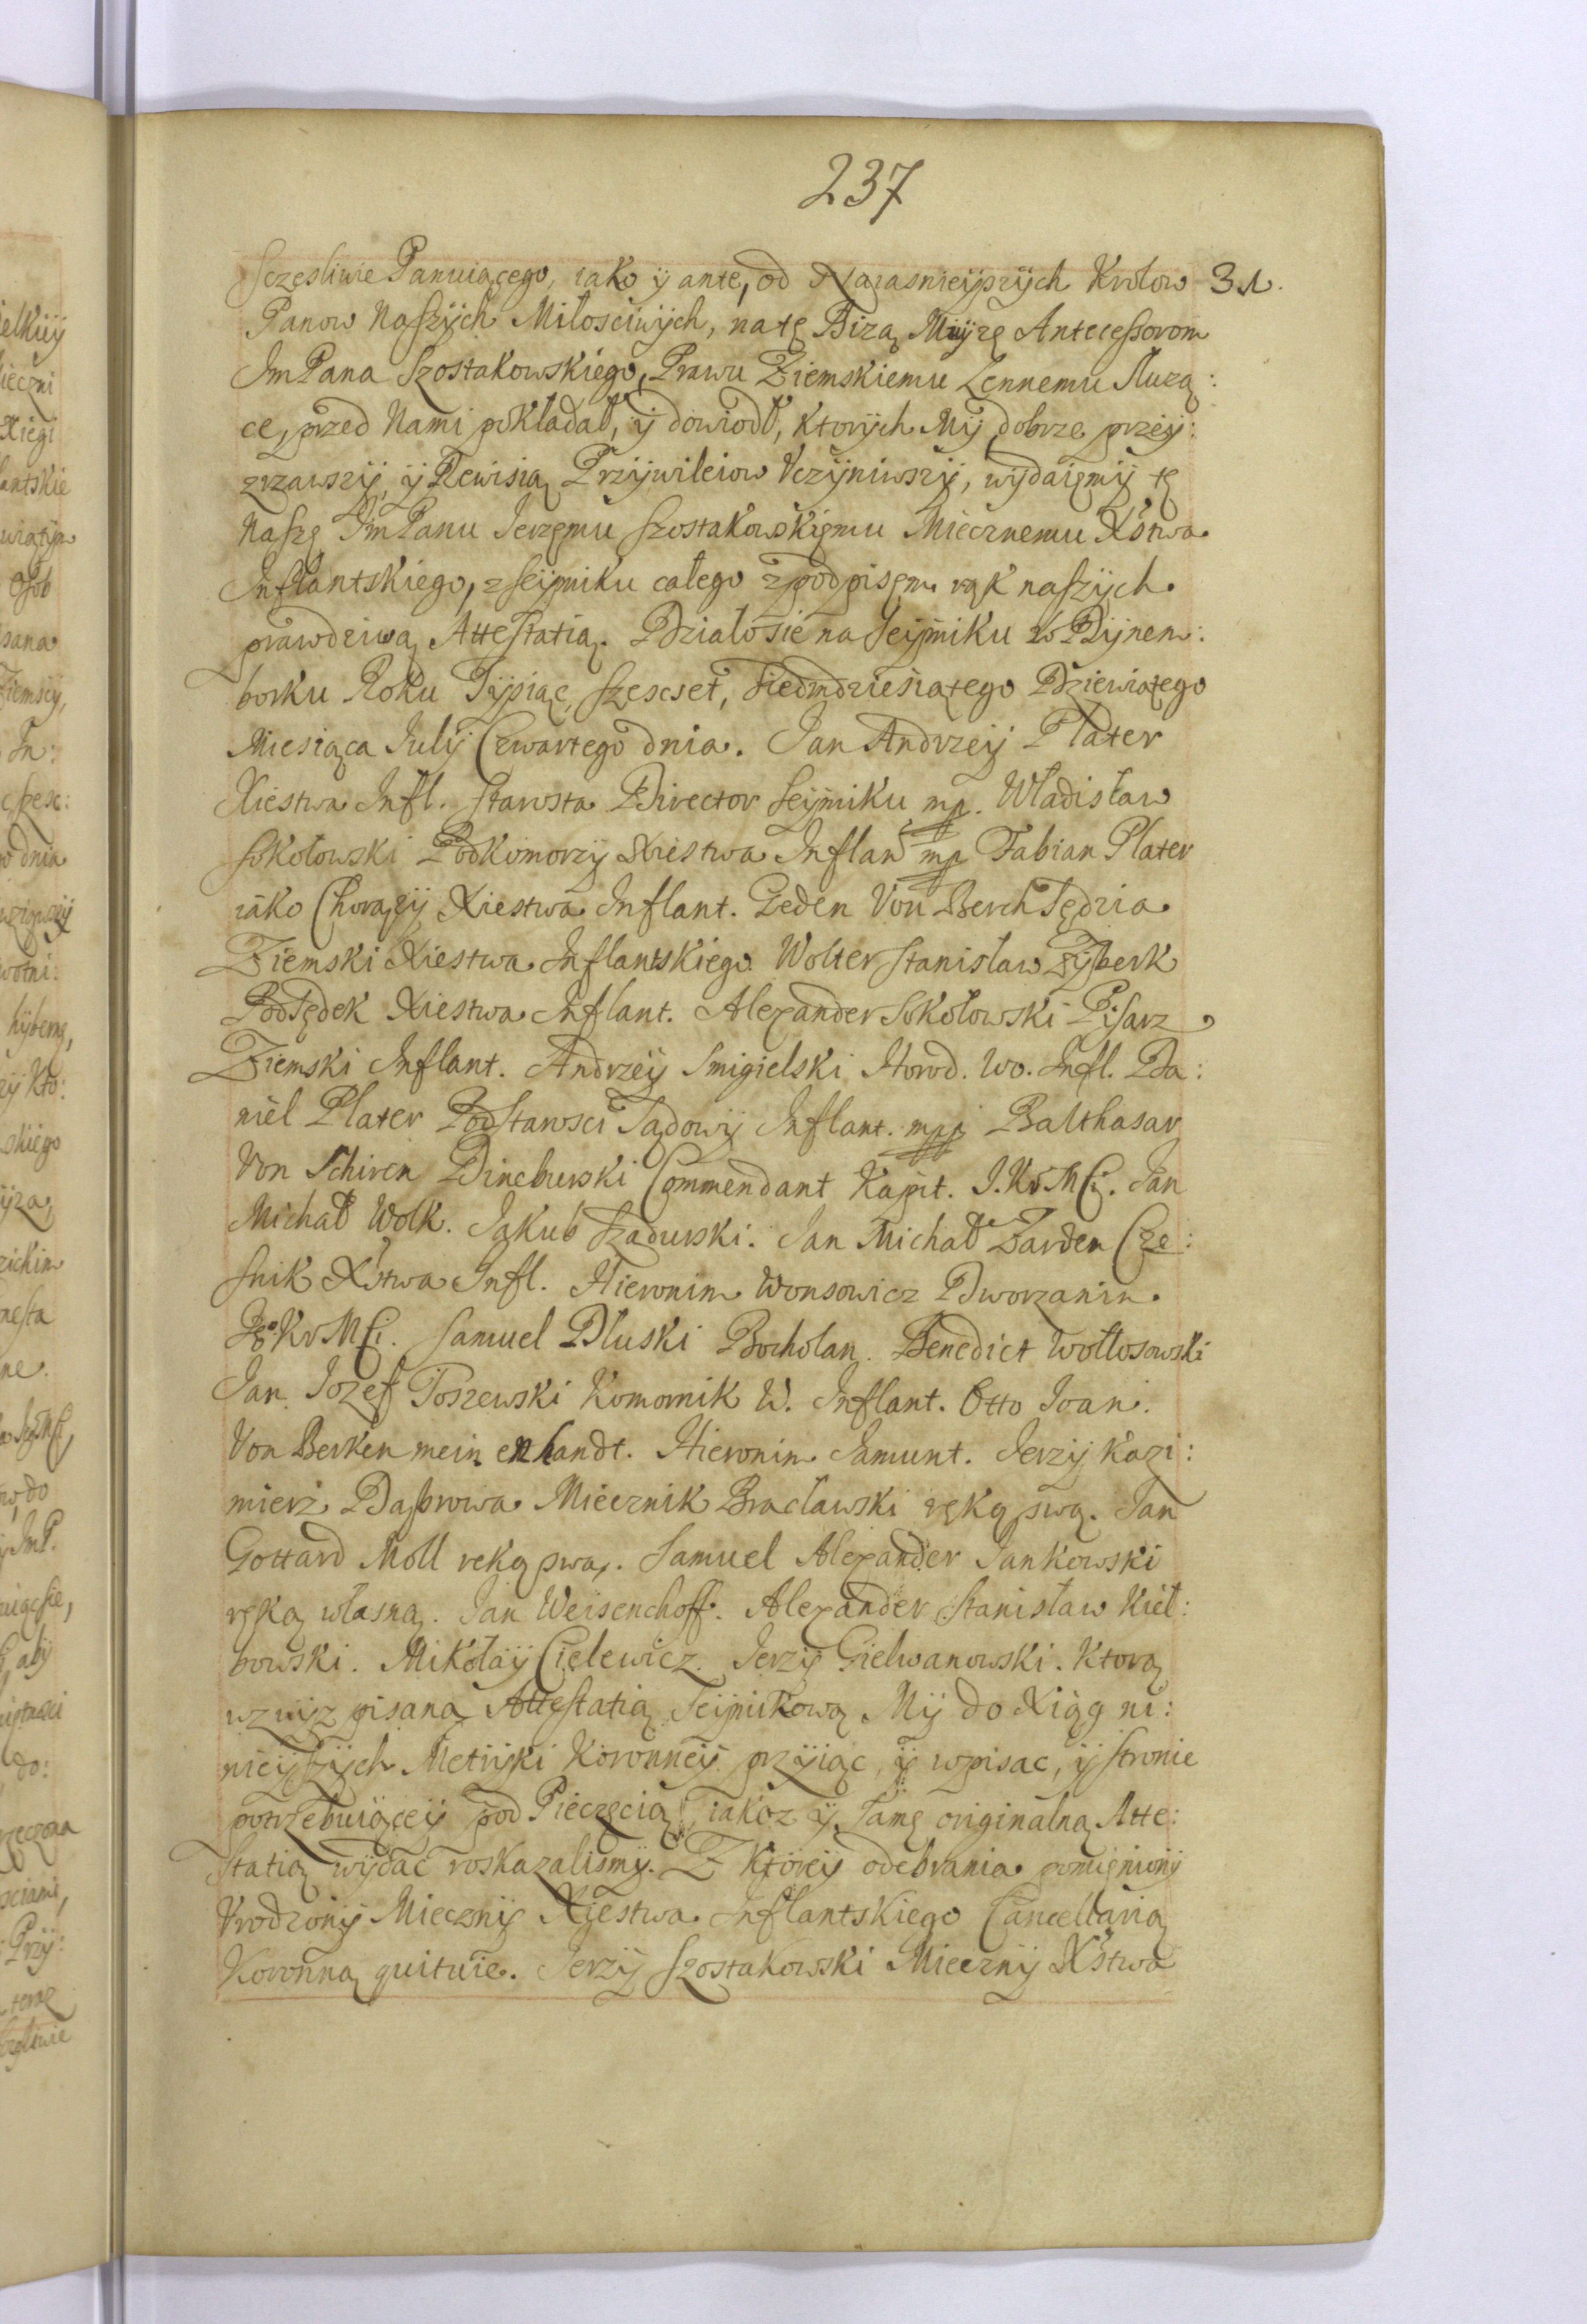 237
Sczęsliwie Panuiącego, iako ÿ ante, od Naiasnieÿszÿch Krolow 31.
Panow Naszÿch Miłosciwÿch, na tę Bizą Muÿzę Antecessorom
Jm Pana Szostakowskiego, Prawu Ziemskiemu Lennemu słuzą:
ce, przed Nami pokładał, ÿ dowiodł, ktorÿch Mÿ dobrze przeÿ:
zrzawszÿ, ÿ Rewisią Przÿwileiow Vczÿniwszÿ, wÿdaięmÿ tę
Naszę Jm Panu Jerzęmu Szostakowskięmu Miecznemu Xstwa
Inflantskiego, z Seÿmiku całego z podpisęm rąk naszÿch
prawdziwą Attestatią. Działo sie na Seÿmiku w Dÿnem:
borku Roku Tÿsiąc, szescset, siedmdziesiątego Dziewiątego
Miesiąca Julÿ Czwartego dnia. Jan Andrzeÿ Plater
Xiestwa Infl. Starosta Director Seÿmiku mp. Władisław
Sokołowski Podkomorzÿ Xiestwa Inflan mp Fabian Plater
iako Chorązÿ Xiestwa Inflant. Gedeн Von Berch Sędzia
Ziemski Xiestwa Inflantskiego. Wolter Stanisław Zÿberk
Podsędek Xiestwa Inflant. Alexander Sokołowski Pisarz
Ziemski Inflant. Andrzeÿ Smigielski Horod. Wo. Infl. Da:
niel Plater Podstarosci Sądowÿ Inflant. mpp Balthasar
Von Schiren Dineburski Commendant Kapit. J.K.M.Ci. Jan
Michał Wolk. Jakub Szadurski. Jan Michał Zarden Cze:
snik Xstwa Infl. Hieronim Wonsowicz Dworzanin
Jgo KrMCi. Samuel Dluski Bocholan. Benedict Wołłosowski
Jan Jozef Toszewski Komornik W. Inflant. Otto Joan.
Von Berken mein en handt. Hieronim Jamunt. Jerzÿ Kazi:
mierz Dąbrowa Miecznik Bracławski ręką swą. Jan
Gottard Moll reką swą. Samuel Alexander Jankowski
ręką własną. Jan Weisenhoff. Alexander Stanisław Kieł:
bowski. Mikołaÿ Cielewicz. Jerzÿ Gielwanowski. Ktorą
wzwÿz pisaną Attestatią Seÿmikową Mÿ do Xiąg ni:
nieÿszÿch Metrÿki Koronneÿ przÿiąc, ÿ wpisac, ÿ stronie
potrzebuiąceÿ pod Pieczęcią, iakoz ÿ samę originalną Atte:
statią wÿdać roskazalismÿ. Z ktoreÿ odebrania pomięnionÿ
Vrodzonÿ Miecznÿ Xiestwa Inflantskiego Cancellarią
Koronną quituie. Jerzÿ Szostakowski Miecznÿ Xstwa